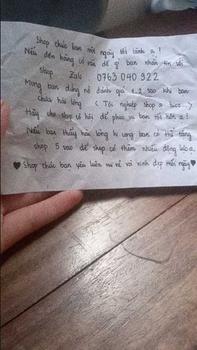 Shop chúc bạn một ngày tốt lành ạ!
Nếu đơn hàng có vấn đề gì bạn nhắn tin với
Shop Zalo 0763 040 322
Mong bạn đừng nề đánh giá 1,2 sao khi bạn
chưa hài lòng (Tội nghiệp shop ạ
Hãy cho shop cơ hội để phục vụ bạn tốt hơn ạ!
Nếu bạn thấy hài lòng hi vọng bạn có thể tặng
shop 5 sao để shop có thêm nhiều động lực ạ.
♥ Shop chúc bạn yêu luôn vui vẻ và xinh đẹp mỗi ngày ♥